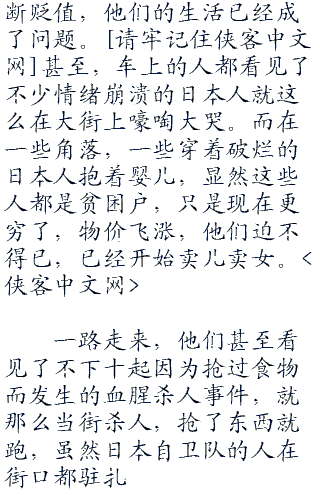 断贬值，他们的生活已经成
了问题。[请牢记住侠客中文
网]甚至，车上的人都看见了
不少情绪崩溃的日本人就这
么在大街上嚎啕大哭。而在
一些角落，一些穿着破烂的
日本人抱着婴儿，显然这些
人都是贫困户，只是现在更
穷了，物价飞涨，他们迫不
得已，已经开始卖儿卖女。<
侠客中文网>
一路走来，他们甚至看
见了不下十起因为抢过食物
而发生的血腥杀人事件，就
那么当街杀人，抢了东西就
跑，虽然日本自卫队的人在
街口都驻扎